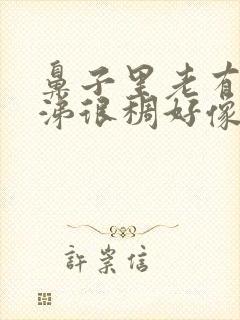 鼻子里老有
涕很稠好像
許崇信